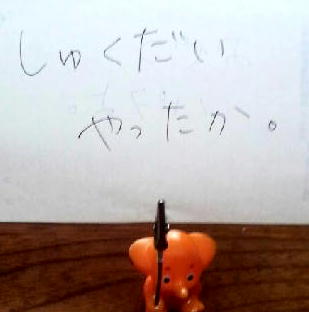 しゅくだい
やったか。